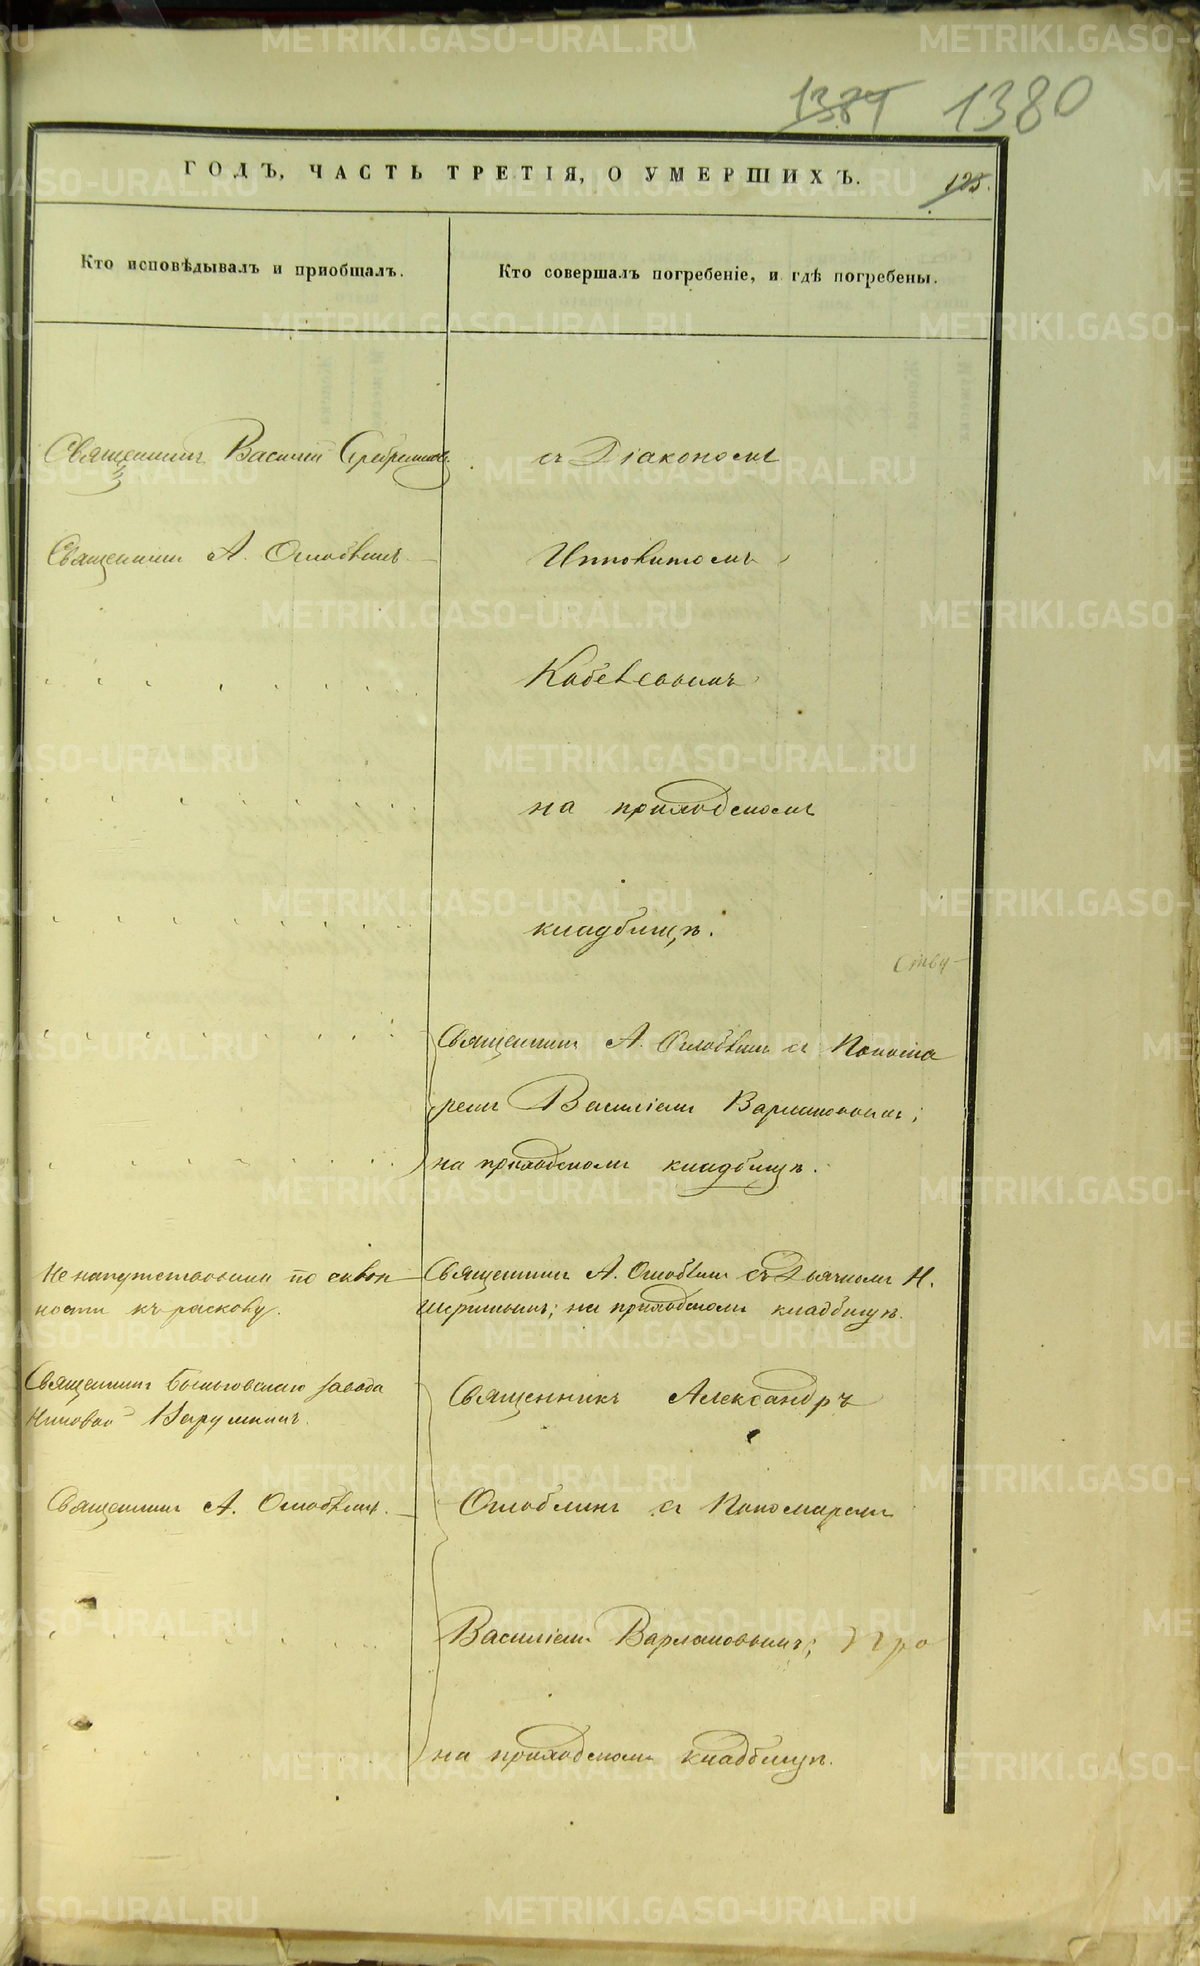 1384 1380
ГОДЪ, ЧАСТЬ ТРЕТІЯ, О УМЕРШИХЪ. 125.
Кто исповѣдывалъ и пріобщалъ.
Кто совершалъ погребеніе, и гдѣ погребены.
Священникъ Василій Серебренниковъ
съ Діакономъ
Священникъ А. Оглоблинъ.
Ипполитомъ
на приходскомъ
кладбищѣ.
Священникъ А. Оглоблинъ съ Понома
ремъ Василіемъ Варлаковымъ;
на приходскомъ кладбищѣ.
Не напутствованы по склон
ности къ расколу.
Священникъ А. Оглоблинъ съ Дьячкомъ Н.
на приходскомъ кладбищѣ.
Священникъ Быньговскаго завода
Священникъ Александръ
Священникъ А. Оглоблинъ.
Оглоблинъ съ Пономаремъ
Василіемъ Варлаковымъ;
на приходскомъ кладбищѣ.
METRIKI.GASO-URAL.RU